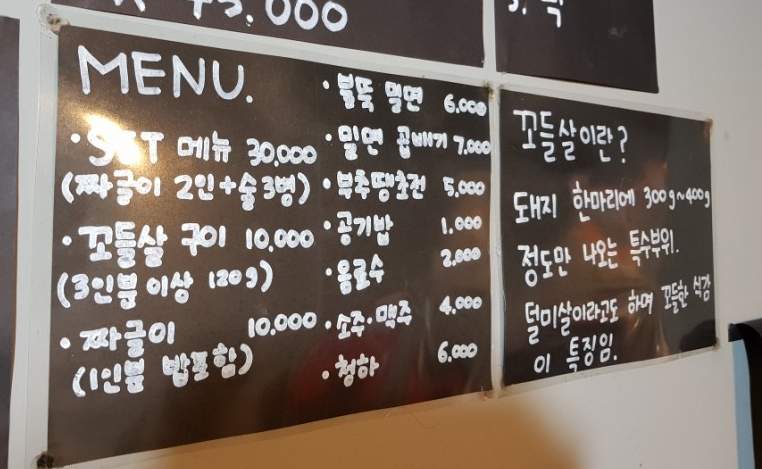 MENU.
· SET 메뉴 30,000
(짜글이 2인+술3병)
· 꼬들살 구이 10,000
(3인분 이상 120g)
· 짜글이 10,000
(1인분 밥포함)
· 불뚝 밀면 6,000
· 밀면 곱배기 7,000
· 부추땡초전 5,000
· 공기밥 1,000
· 음료수 2,000
· 소주·맥주 4,000
· 청하 6,000
꼬들살이란?
돼지 한마리에 300g~400g
정도만 나오는 특수부위.
덜미살이라고도 하며 꼬들한 식감
이 특징임.